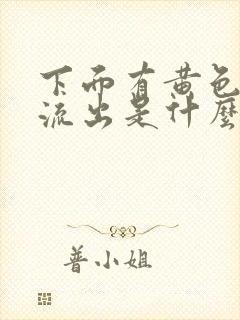 下面有黄色
流出是什麼
普小姐